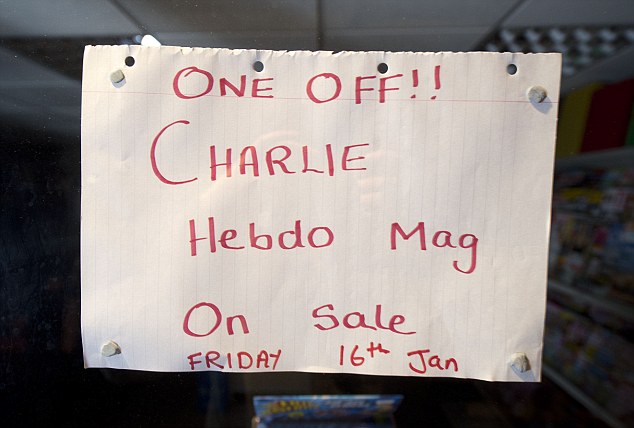 ONE OFF!!
CHARLIE
Hebdo Mag
On Sale
FRIDAY 16th Jan